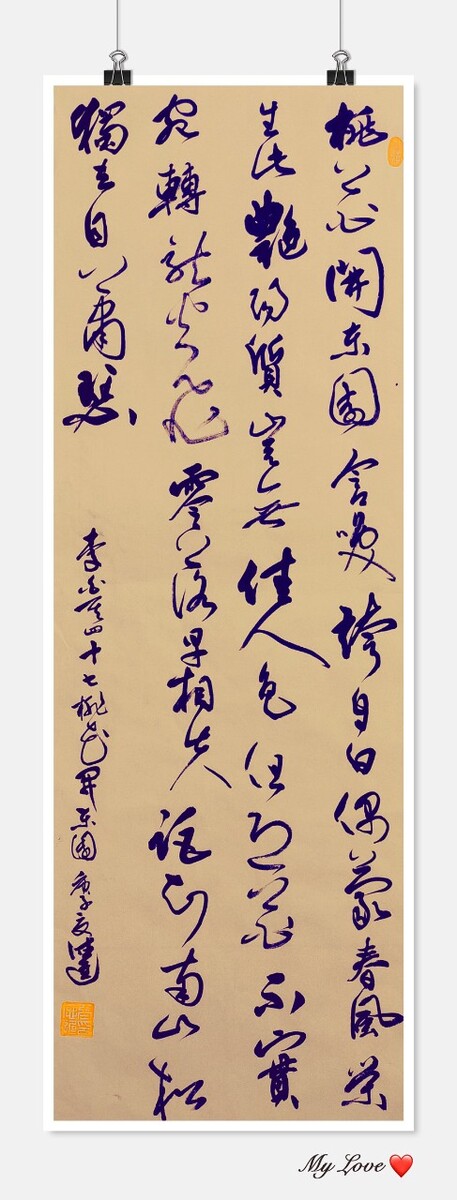 桃花開東園含咲誇白日偶蒙春風榮
生此艷陽質豈無佳人色但恐花不實
宛轉龍火飛零落早相失詎知南山松
獨立自蕭瑟
李白其四十七桃花開東園 庚子夏
My Love